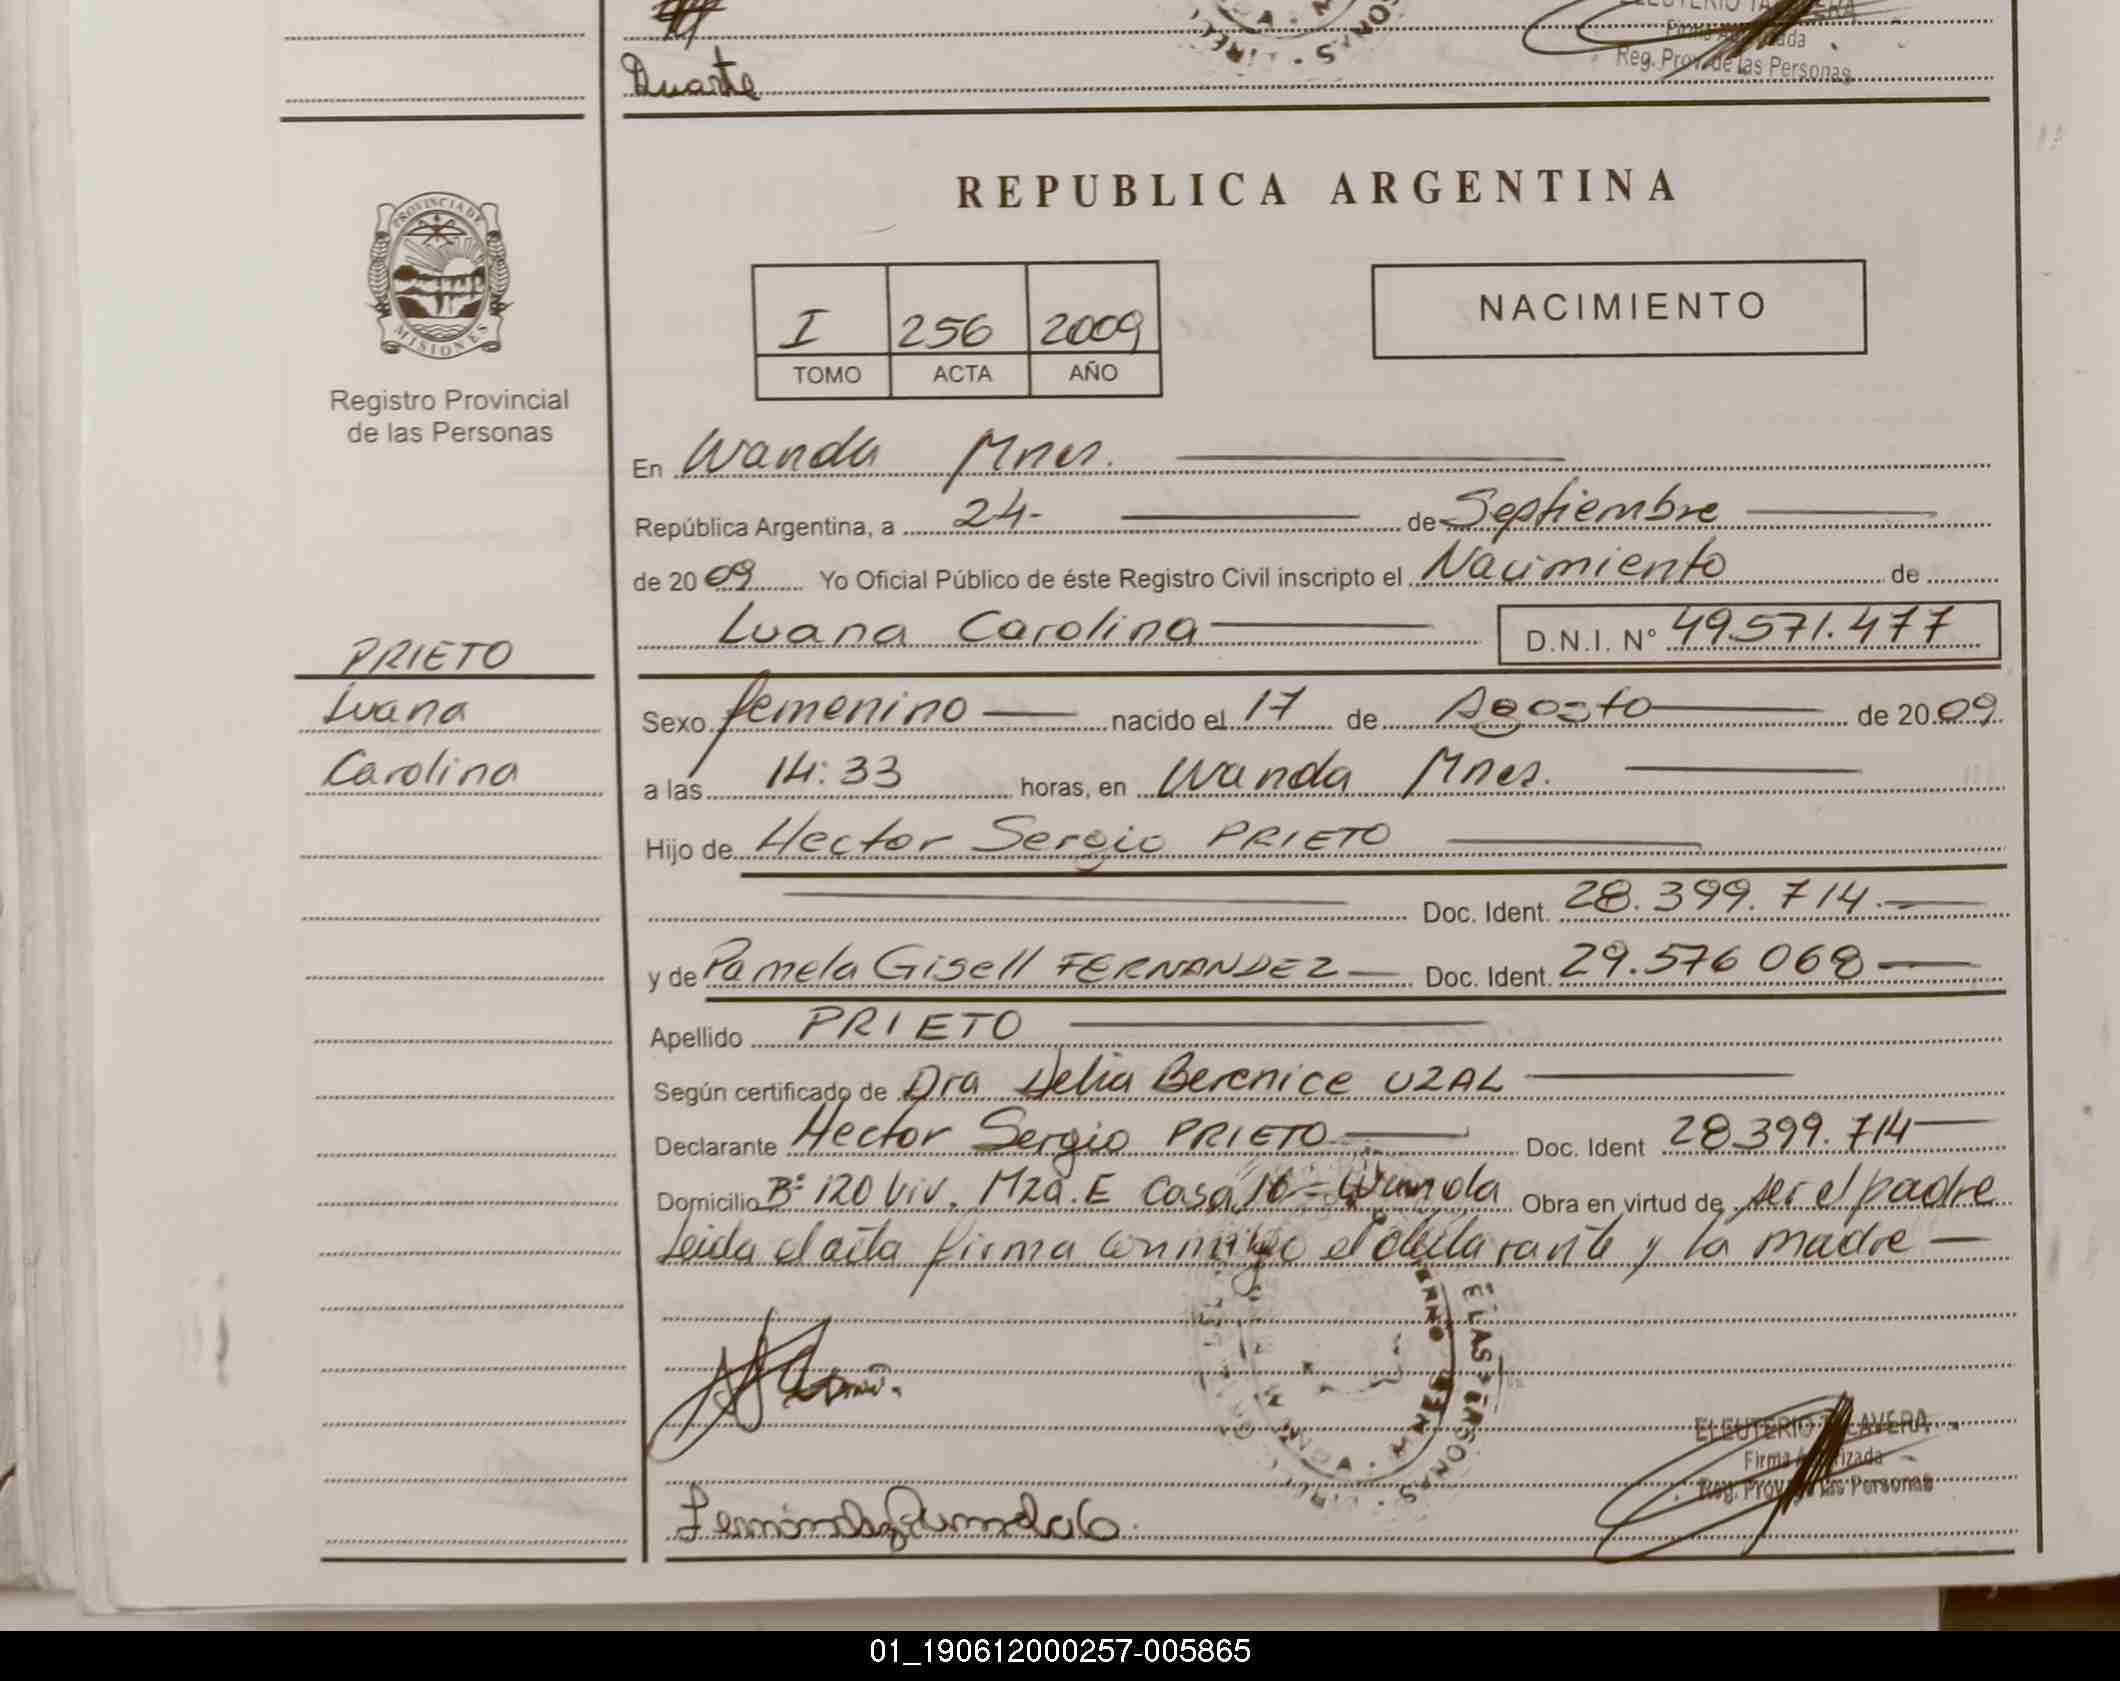 Duarte
ELEUTERIO TALAVERA
Firma Autorizada
Reg. Prov. de las Personas
PROVINCIA DE
MISIONES
Registro Provincial
de las Personas
REPUBLICA ARGENTINA
I 256 2009
TOMO ACTA AÑO
NACIMIENTO
En Wanda Mnes.
República Argentina, a 24- de Septiembre
de 2009 Yo Oficial Público de éste Registro Civil inscripto el Nacimiento de
Luana Carolina D.N.I. N° 49.571.477
PRIETO
Luana
Carolina
Sexo femenino nacido el 17 de Agosto de 2009
a las 14:33 horas, en Wanda Mnes.
Hijo de Hector Sergio PRIETO
Doc. Ident. 28.399.714.
y de Pamela Gisell FERNANDEZ Doc. Ident. 29.576 068
Apellido PRIETO
Según certificado de Dra Delia Berenice UZAL
Declarante Hector Sergio PRIETO Doc. Ident 28.399.714
Domicilio B° 120 Viv. Mza. E Casa 16 - Wanda Obra en virtud de ser el padre
Leida el acta firma conmigo el declarante y la madre
ELEUTERIO TALAVERA
Firma Autorizada
Reg. Prov. de las Personas
01_190612000257-005865